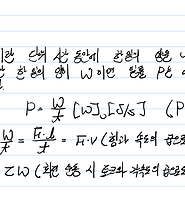 단위 시간 동안에 한 일을
한 일의 양이 W 이면 일률 P는
P = W/t [W], [J/s] (P
W/t = F·l/t = F·v (힘과 속도의 곱으로
τω (회전 운동 시 토크와 각속도의 곱으로